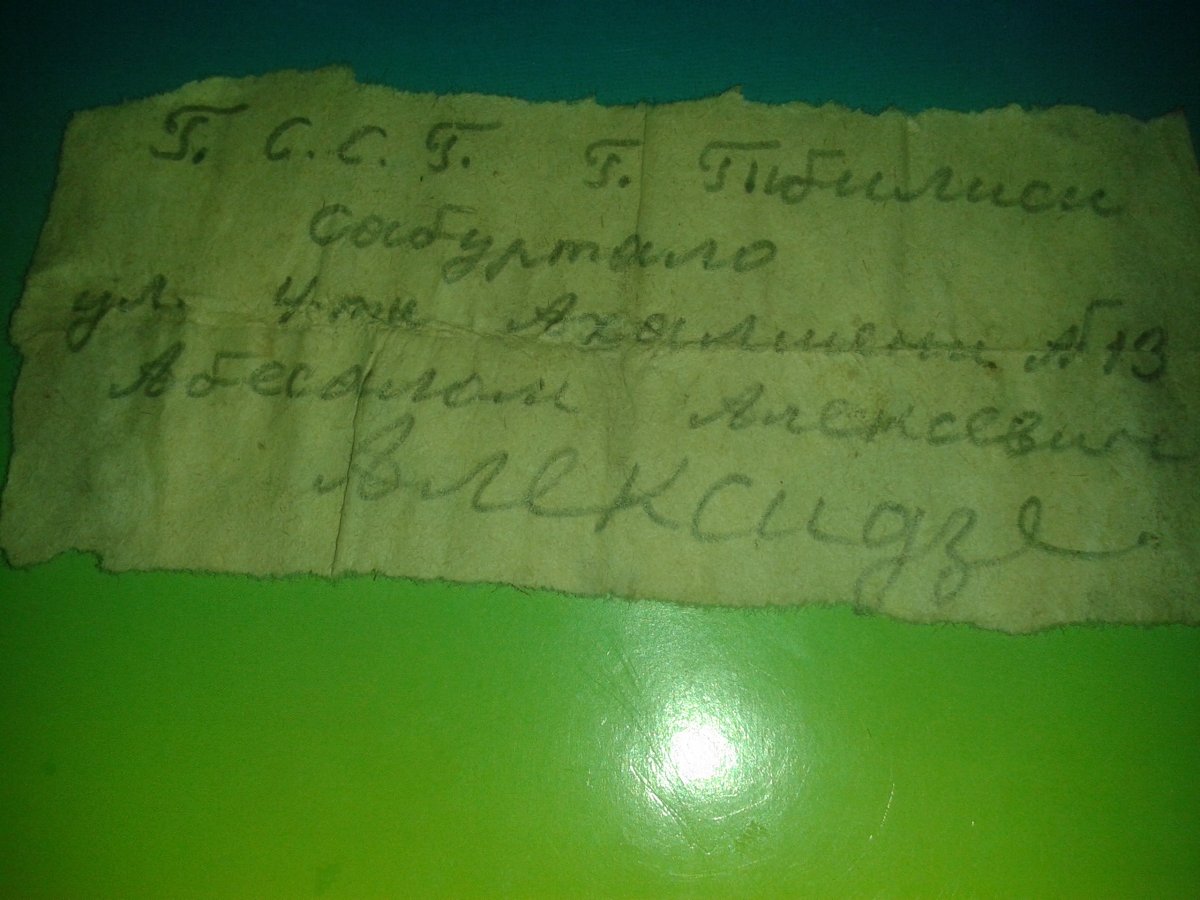 Г. С. С. Г. Г. Тибилиси
сабуртало
ул. 4-ти Ахалшени №13
Абесалом Алексевич
Алексидзе